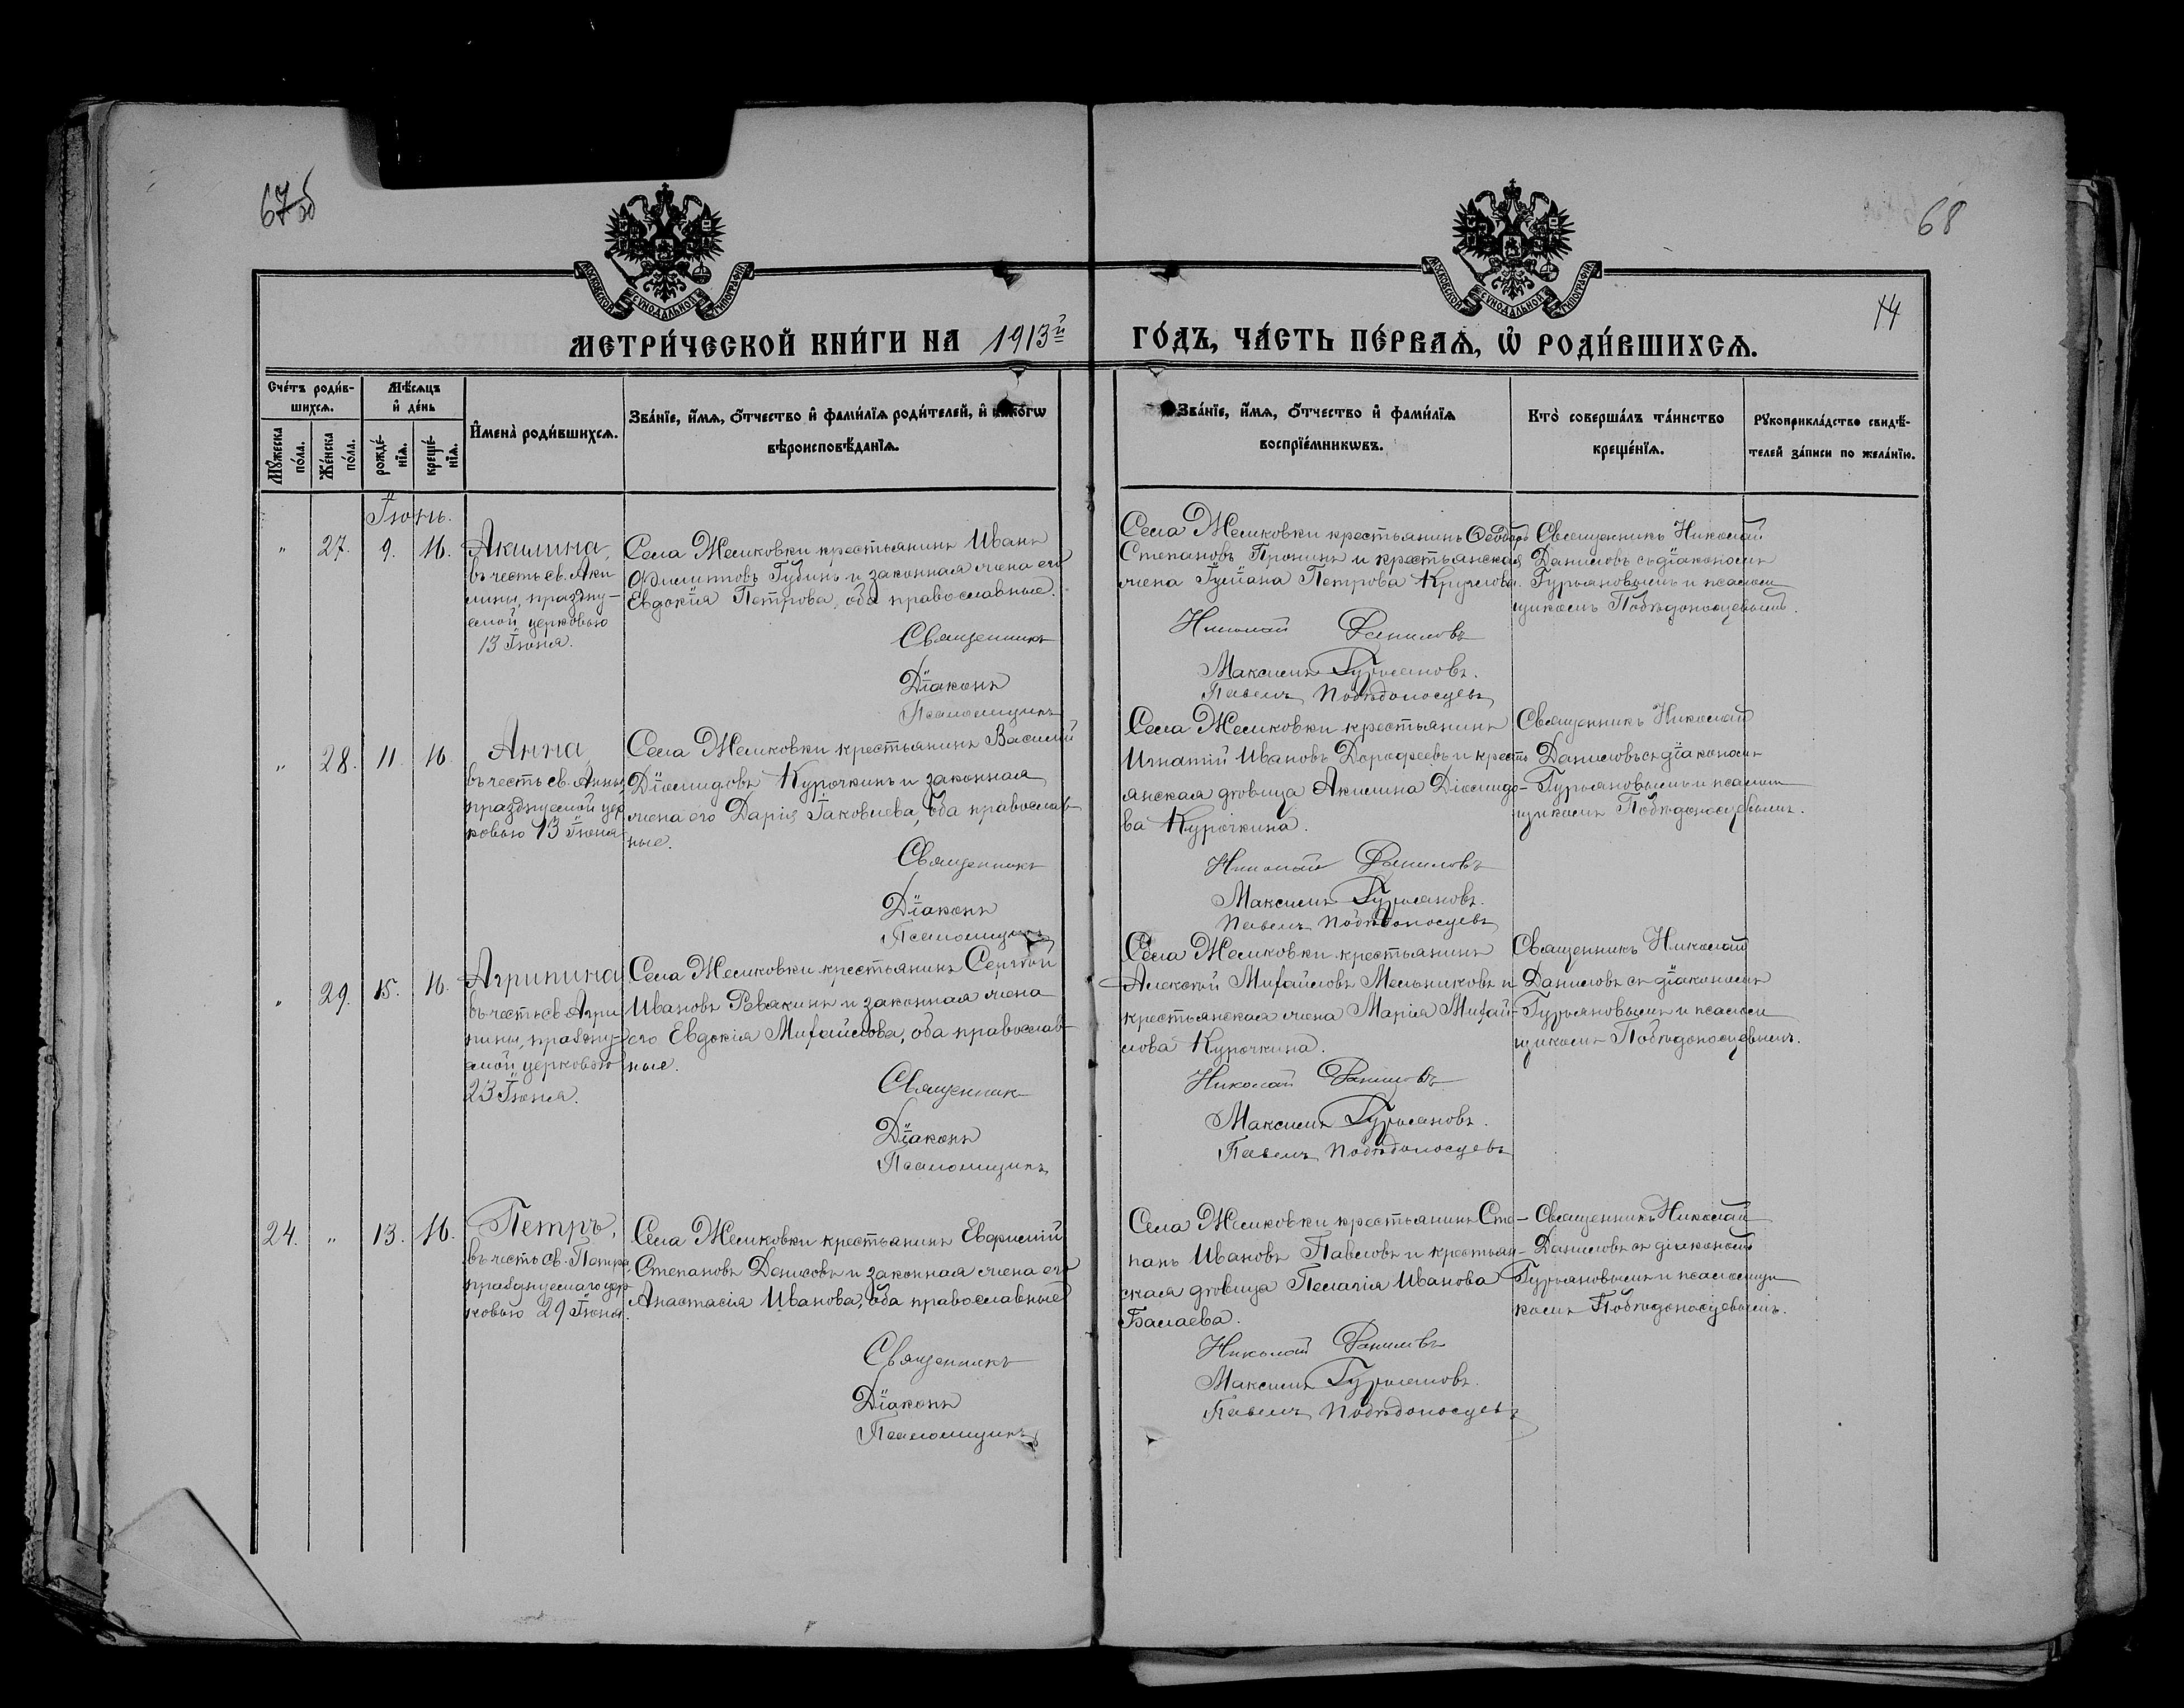 67об
68
14
МОСКОВСКОЙ СѴНОДАЛЬНОЙ ТИПОГРАФІИ
МОСКОВСКОЙ СѴНОДАЛЬНОЙ ТИПОГРАФІИ
МЕТРИ́ЧЕСКОЙ КНИ́ГИ НА 1913й ГО́ДЪ, ЧА́СТЬ ПЕ́РВАѦ, Ѡ҆ РОДИ́ВШИХСѦ.
Сче́тъ роди́в-
шихсѧ.
Мѣ́сѧцъ
и҆ де́нь
Мꙋ́жеска
по́ла.
Же́нска
по́ла.
рожде́-
нїѧ.
креще́-
нїѧ.
И҆мена̀ роди́вшихсѧ.
Зва́нїе, и҆́мѧ, ѻ҆́тчество и҆ фами́лїѧ роди́телей, и҆ како́гѡ
вѣроисповѣ́данїѧ.
Зва́нїе, и҆́мѧ, ѻ҆́тчество и҆ фами́лїѧ
воспрїе́мникѡвъ.
Кто̀ соверша́лъ та́инство
креще́нїѧ.
Рꙋкоприкла́дство свидѣ́-
телей за́писи по жела́нїю.
Іюнь.
" 27. 9. 16.
Акилина,
въ честь св. Аки
лины, праздну-
емой церковью
13 Іюня.
Села Жемковки крестьянинъ Иванъ
Филипповъ Губинъ и законная жена его
Евдокія Петрова, оба православные.
Священникъ
Діаконъ
Псаломщикъ
Села Жемковки крестьянинъ Ѳеодоръ
Степановъ Пронинъ и крестьянская
жена Іуліана Петрова Круглова.
Николай Даниловъ
Максимъ Гурьяновъ.
Павелъ Побѣдоносцевъ
Священникъ Николай
Даниловъ съ діакономъ
Гурьяновымъ и псалом
щикомъ Побѣдоносцевымъ.
" 28. 11. 16.
Анна,
въ честь св. Анны,
празднуемой цер
ковью 13 Іюня
Села Жемковки крестьянинъ Василій
Діомидовъ Курочкинъ и законная
жена его Дарія Іаковлева, оба православ-
ные.
Священникъ
Діаконъ
Псаломщикъ
Села Жемковки крестьянинъ
Игнатій Ивановъ Дорофеевъ и кресть
янская дѣвица Акилина Діомидо-
ва Курочкина.
Николай Даниловъ
Максимъ Гурьяновъ.
Павелъ Побѣдоносцевъ
Священникъ Николай
Даниловъ съ діакономъ
Гурьяновымъ и псалом
щикомъ Побѣдоносцевымъ.
" 29. 15. 16.
Агрипина
въ честь св. Агри
пины, праздну-
емой церковью
23 Іюня.
Села Жемковки крестьянинъ Сергѣй
Ивановъ Ревякинъ и законная жена
его Евдокія Михайлова, оба православ-
ные.
Священникъ
Діаконъ
Псаломщикъ
Села Жемковки крестьянинъ
Алексѣй Михайловъ Мельниковъ и
крестьянская жена Марія Михай-
лова Курочкина.
Николай Даниловъ
Максимъ Гурьяновъ.
Павелъ Побѣдоносцевъ
Священникъ Николай
Даниловъ съ діакономъ
Гурьяновымъ и псалом
щикомъ Побѣдоносцевымъ.
24. " 13. 16.
Петръ,
въ честь св. Петра,
празднуемаго цер
ковью 29 Іюня.
Села Жемковки крестьянинъ Евфимій
Степановъ Денисовъ и законная жена его
Анастасія Иванова, оба православные
Священникъ
Діаконъ
Псаломщикъ
Села Жемковки крестьянинъ Сте-
панъ Ивановъ Павловъ и крестьян-
ская дѣвица Пелагія Иванова
Балаева.
Николай Даниловъ
Максимъ Гурьяновъ.
Павелъ Побѣдоносцевъ
Священникъ Николай
Даниловъ съ діакономъ
Гурьяновымъ и псаломщи
комъ Побѣдоносцевымъ.